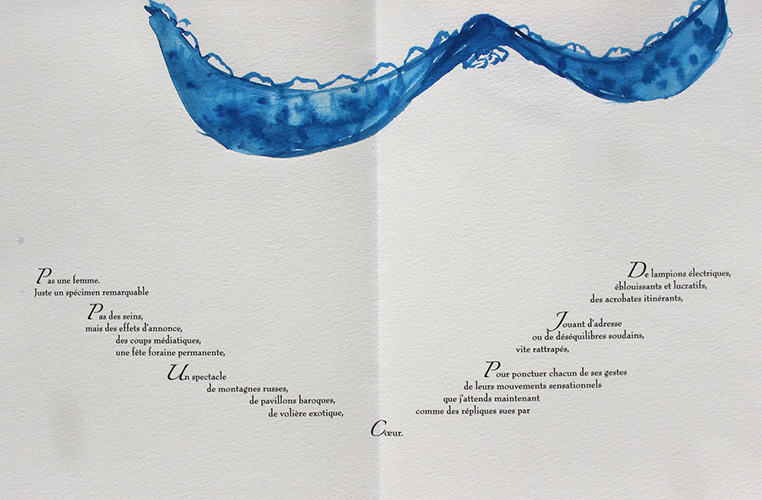 Pas une femme.
Juste un spécimen remarquable
Pas des seins,
mais des effets d'annonce,
des coups médiatiques,
une fête foraine permanente,
Un spectacle
de montagnes russes,
de pavillons baroques,
de volière exotique,
De lampions électriques,
éblouissants et lucratifs,
des acrobates itinérants,
Jouant d'adresse
ou de déséquilibres soudains,
vite rattrapés,
Pour ponctuer chacun de ses gestes
de leurs mouvements sensationnels
que j'attends maintenant
comme des répliques sues par
Cœur.